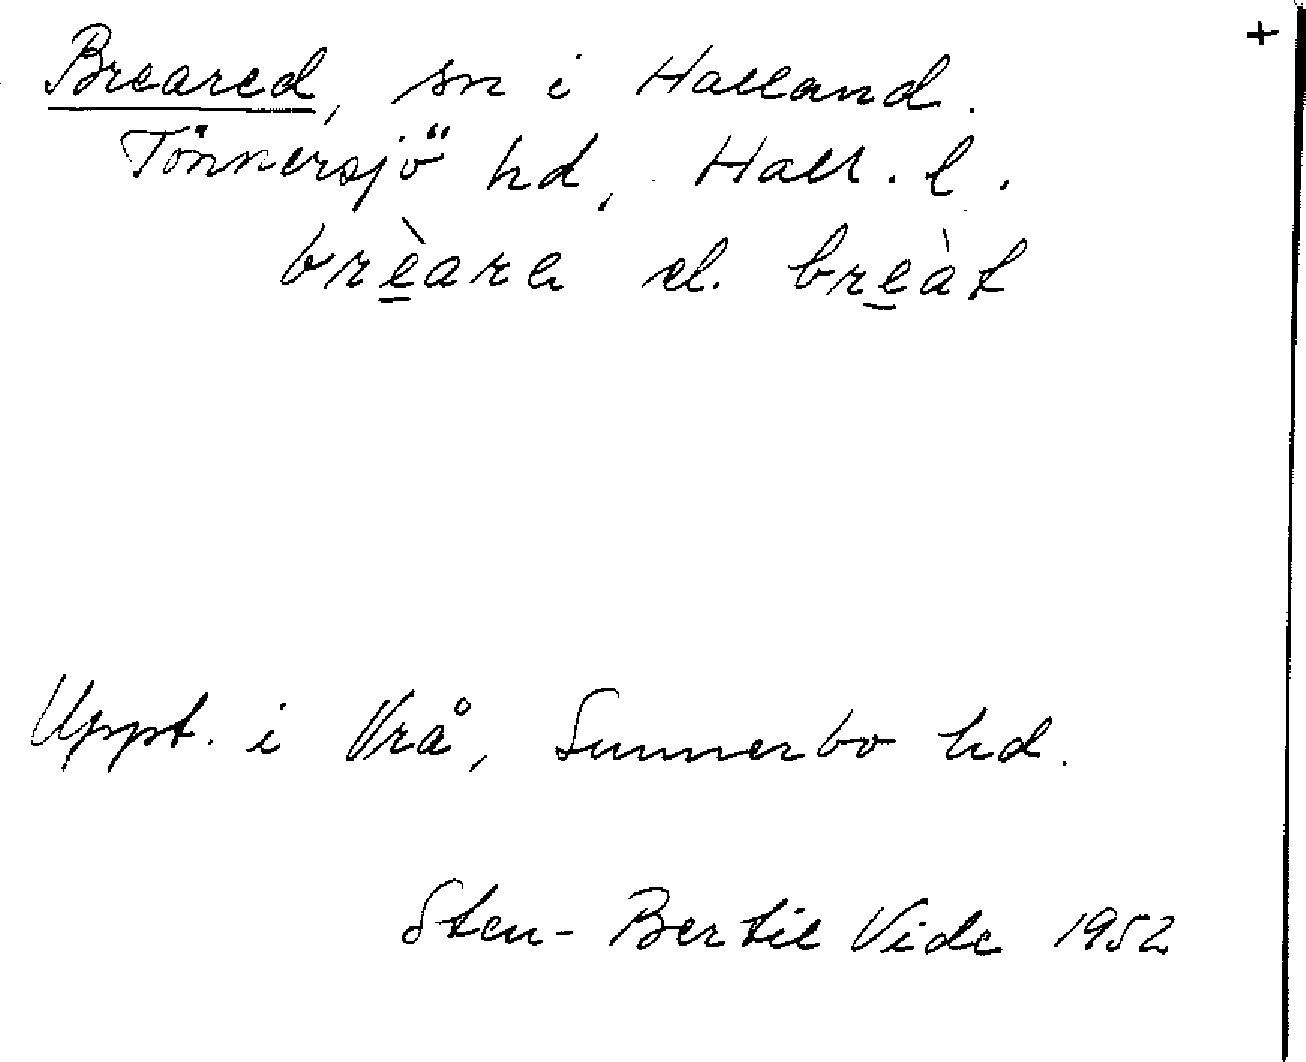 +
Breared, sn i Halland.
Tönnersjö hd, Hall. l.
brèara el. breàt
Uppt. i Vrå, Sunnerbo hd.
Sten-Bertil Vide 1952